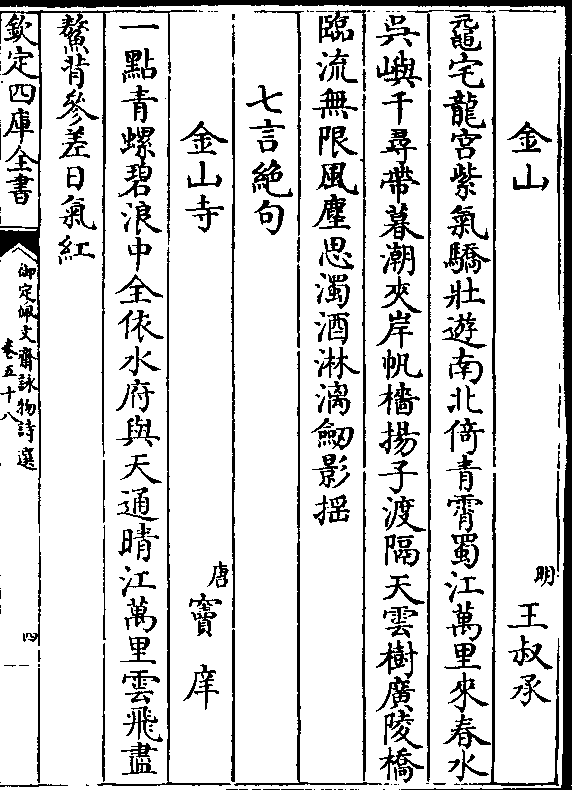 金山
明王叔承
黿宅龍宮紫氣驕壯遊南北倚青霄蜀江萬里來春水
吳嶼千尋帶暮潮夾岸帆檣揚子渡隔天雲樹廣陵橋
臨流無限風塵思濁酒淋漓劒影揺
七言絶句
金山寺
唐竇庠
一點青螺碧浪中全依水府與天通晴江萬里雲飛盡
鰲背參差日氣紅
欽定四庫全書
御定佩文齋詠物詩選
卷五十八
四